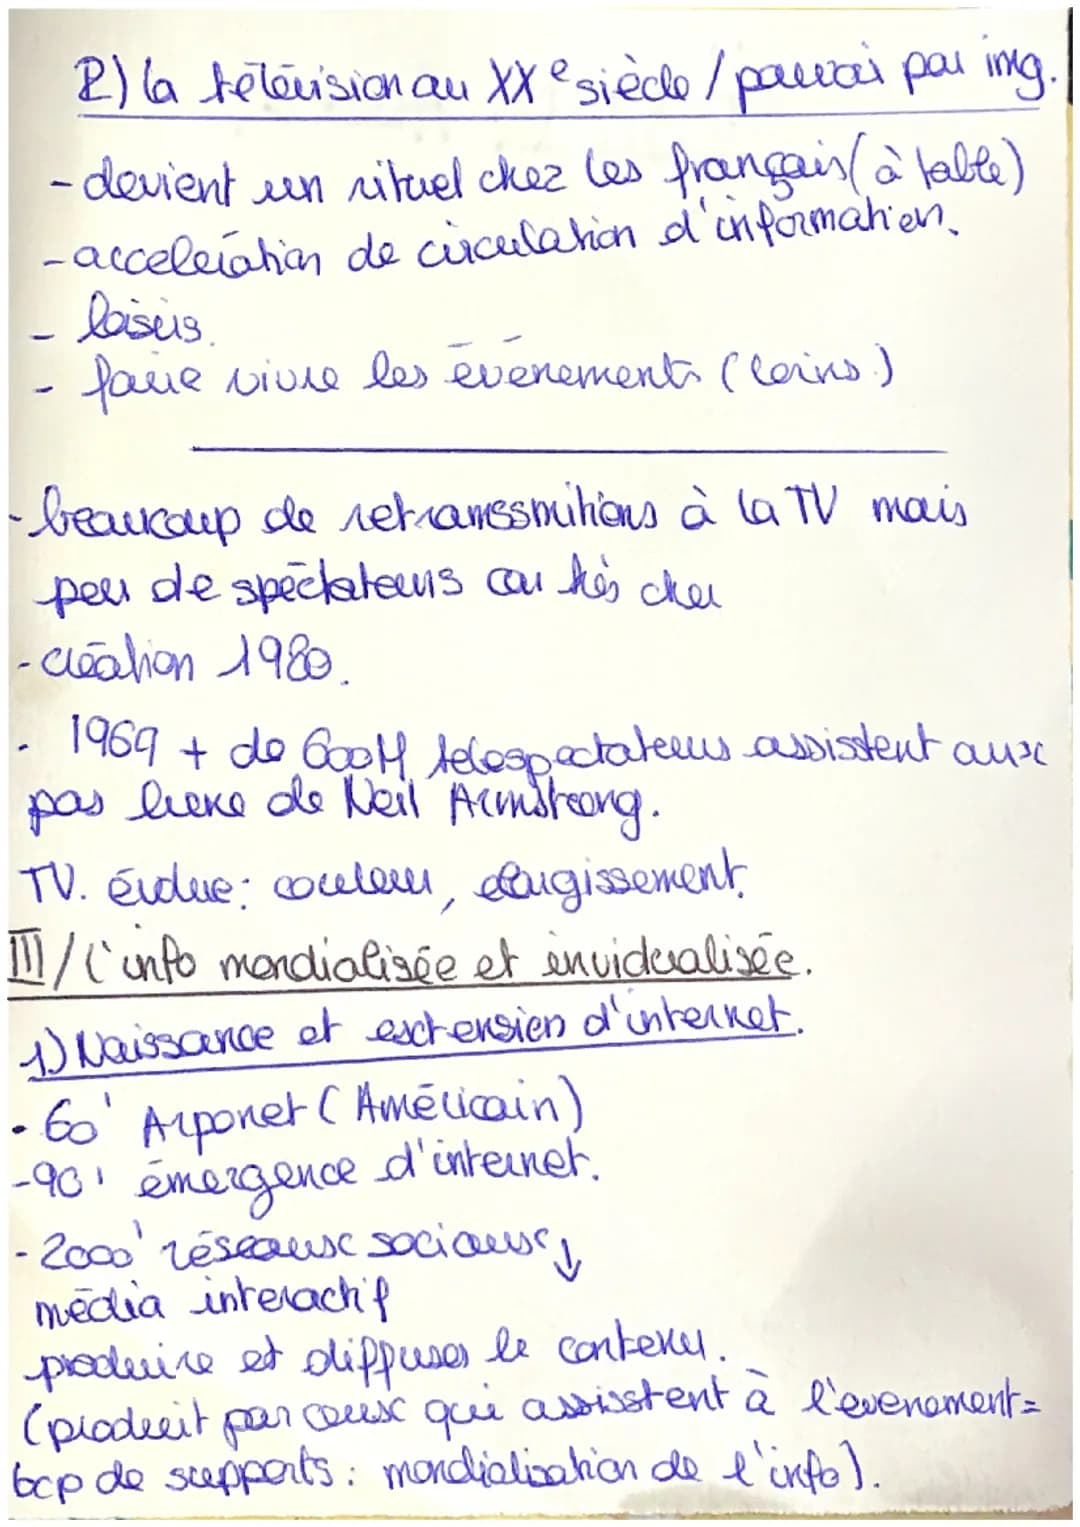 2) la télévision au XXe siècle / pouvoir par img.
- devient un rituel chez les français (à table)
- acceleration de circulation d'information.
- loisirs.
- faire vivre les évènements (loins.)
- beaucoup de retramssmitions à la TV mais
peu de spéctateurs car très cher
- création 1980.
- 1969 + de 600M telespectateurs assistent aux
pas lieke de Neil Armstrong.
TV. évolue: couleur, élargissement.
III/ l'info mondialisée et invidualisée.
1) Naissance et extension d'internet.
- 60' Arponet (Américain)
- 90' émergence d'internet.
- 2000' réseaux sociaux ↓
média interactif
produire et diffuser le contenu.
(produit par ceux qui assisstent à l'evenement =
bcp de supports : mondialisation de l'info).